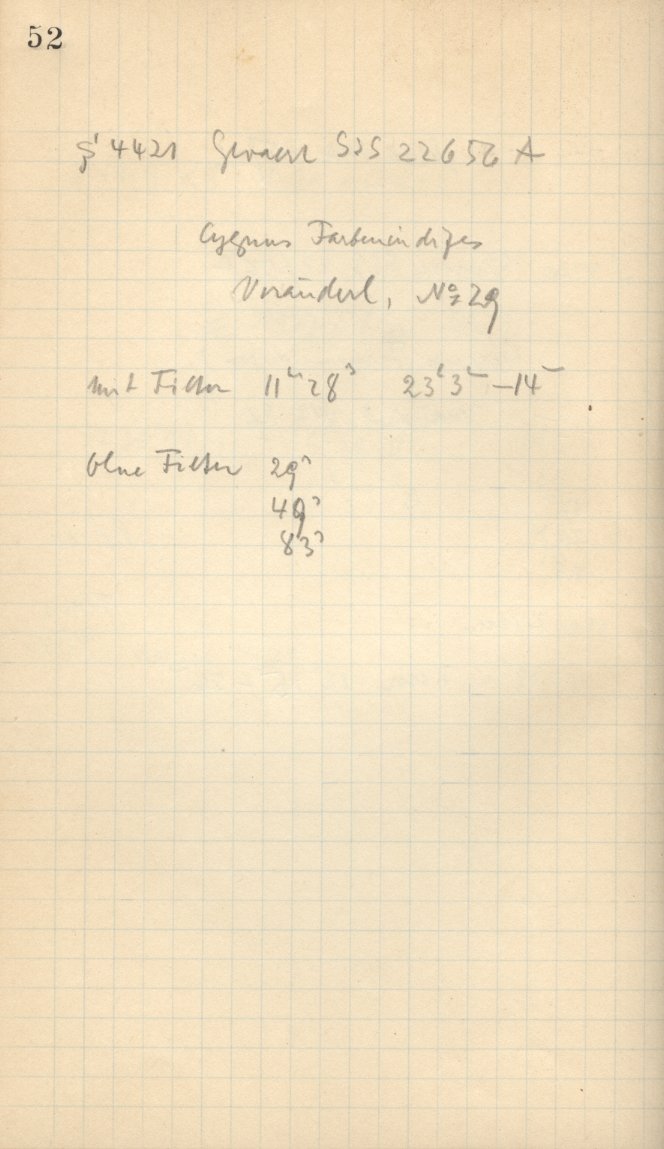 52
4421 Gevaert SSS 22656 A
Cygnus Farbenindizes
Veränderl, No 29
mit Filter 11ᵐ28ˢ 23ʰ3ᵐ–14ᵐ
Ohne Filter 29ˢ
49ˢ
83ˢ